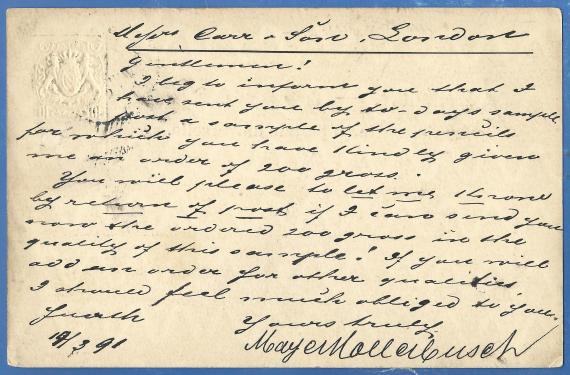 Messrs Carr & Son, London
Gentlemen!
I beg to inform you that I
have sent you by to-days sample
post a sample of the pencils
for which you have kindly given
me an order of 200 gross.
You will please to let me know
by return of post if I can send you
now the ordered 200 gross in the
quality of this sample! If you will
add an order for other qualities
I should feel much obliged to you.
Yours truly
Fuerth
19/3 91